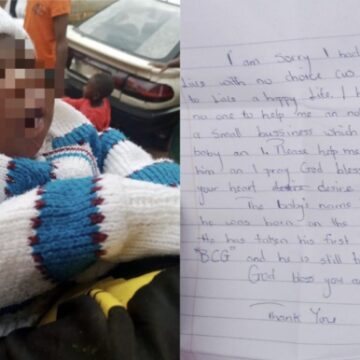 I am sorry I had
live with no choice cus
to live a happy life. I h
no one to help me an not
a small bussiness which
baby an I. Please help me
him an I pray. God bless
your heart desire desire
The baby's name
he was born on the
He has taken his first
"BCG" and he is still b
God bless you a
Thank You